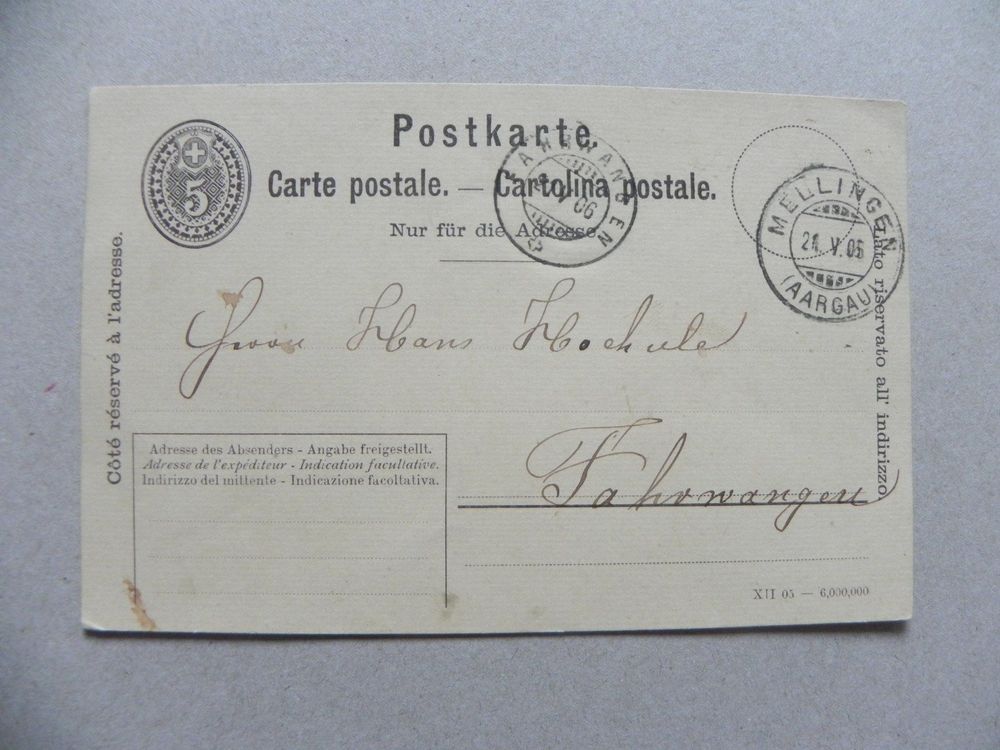 Postkarte.
Carte postale. — Cartolina postale.
Nur für die Adresse.
5
FAHRWANGEN
V 06
MELLINGEN
21. V. 06
(AARGAU)
Côté réservé à l'adresse.
Lato riservato all' indirizzo.
Herrn Hans Hochule
Fahrwangen
Adresse des Absenders - Angabe freigestellt.
Adresse de l'expéditeur - Indication facultative.
Indirizzo del mittente - Indicazione facoltativa.
XII 05 — 6,000,000